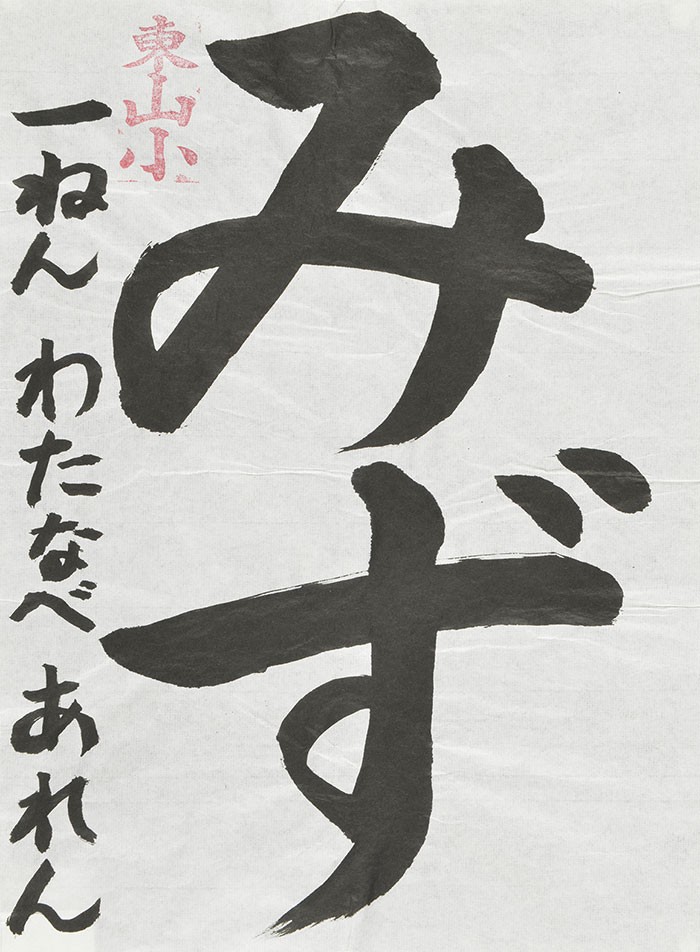 みず
東山小
一ねん わたなべ あれん